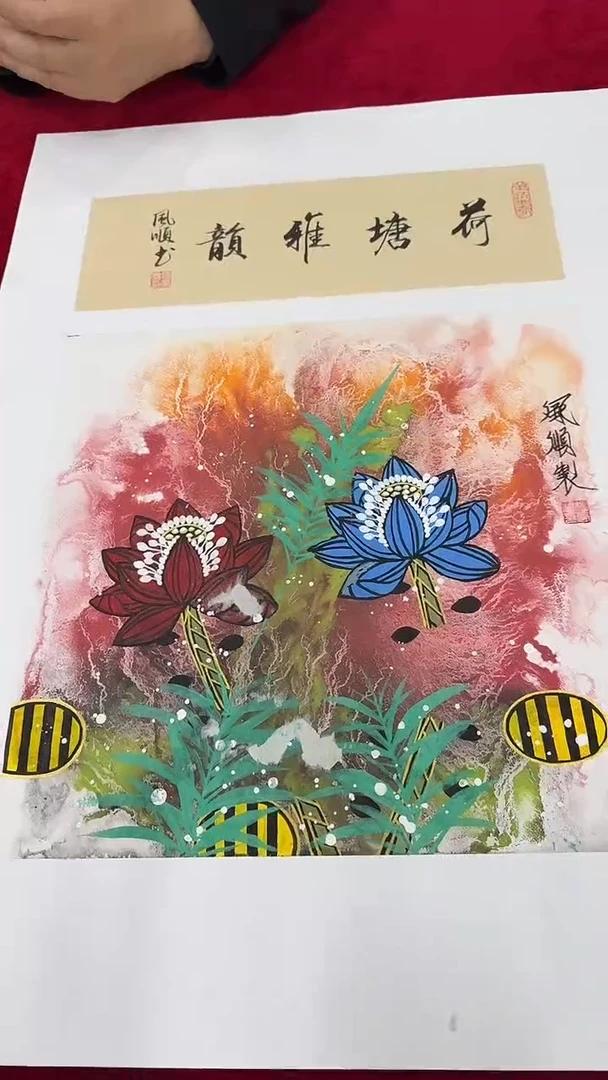 荷塘雅韻
風順书
風順製